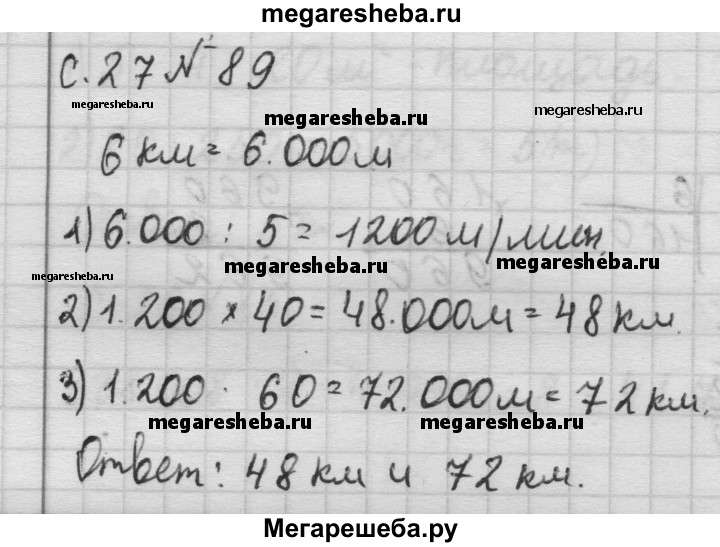 megaresheba.ru
с.27 № 89
megaresheba.ru
megaresheba.ru
megaresheba.ru
6 км = 6.000м
1) 6.000 : 5 = 1200 м/мин
megaresheba.ru
megaresheba.ru
megaresheba.ru
2) 1.200 × 40 = 48.000м = 48 км.
3) 1.200 · 60 = 72.000м = 72 км.
megaresheba.ru
megaresheba.ru
Ответ: 48 км и 72 км.
Мегарешеба.ру